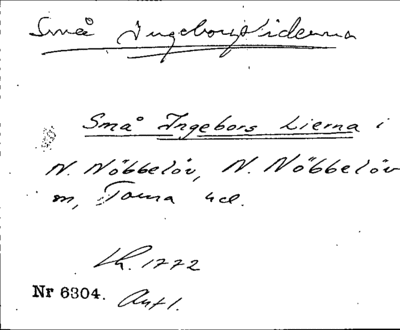 Små Ingeborgs
Små Ingebors Lierna i
N. Nöbbelöv, N. Nöbbelöv
m, Torna hd.
Lh. 1772
Nr 6304. Avt 1.